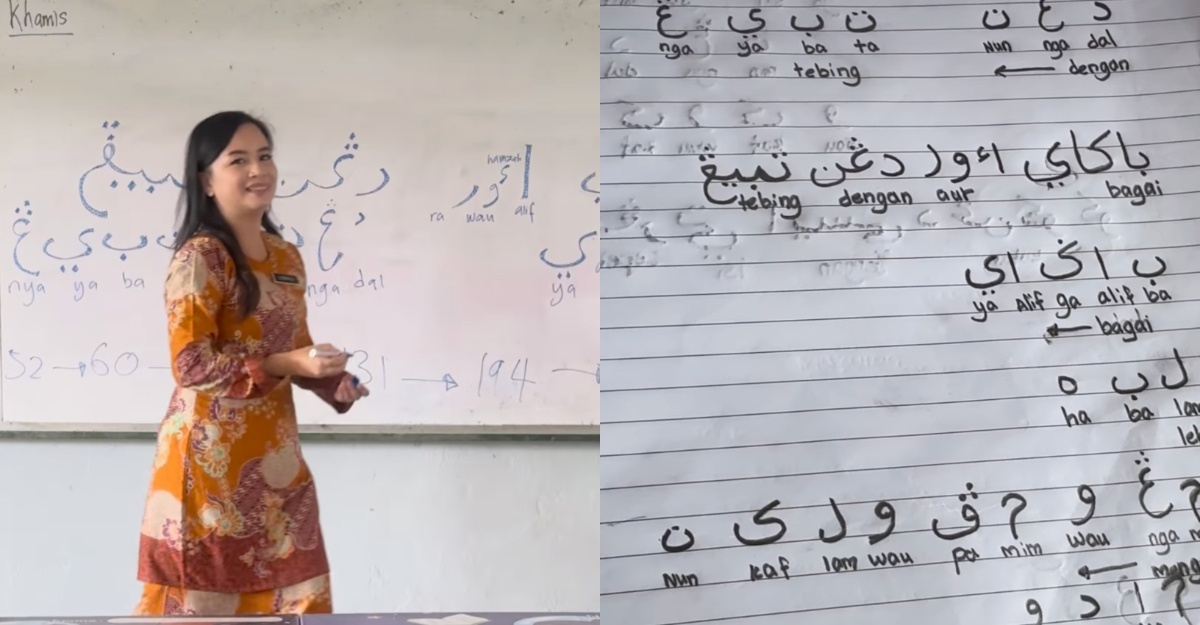 Khamis
دڠن
hamzah
اءور
ra wau alif
د ڠ ب ي ڠ
nya ya ba nga dal ya
52 → 60 31 → 194 →
د ڠ ن ت ب ي ڠ
nga ya ba ta Nun nga dal
tebing ← dengan
باكاي اءور دڠن تبيڠ
tebing dengan aur bagai
ب ا ݢ ا ي
ya Alif ga alif ba
← bagai
ل ب ه
ha ba lam
ڠ و م ڤ و ل ک ن
Nun kaf lam wau pa mim wau nga
←
ا د و